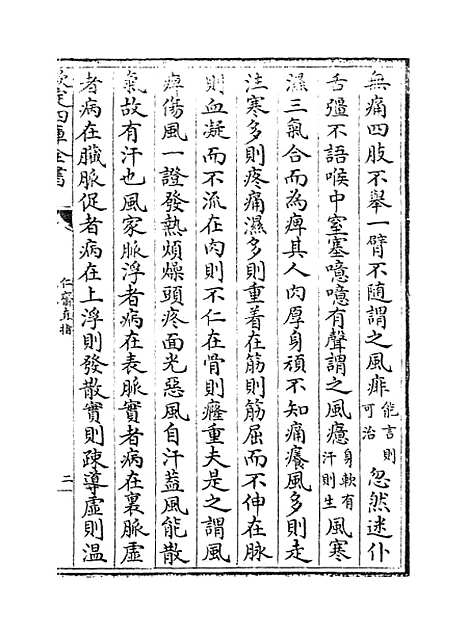 無痛四肢不舉一臂不隨謂之風痱能言則可治忽然迷仆
舌彊不語喉中窒塞噫噫有聲謂之風癔身軟有汗則生風寒
濕三氣合而為痺其人肉厚身頑不知痛癢風多則走
注寒多則疼痛濕多則重着在筋則筋屈而不伸在脉
則血凝而不流在肉則不仁在骨則癃重夫是之謂風
痺傷風一證發熱煩燥頭疼面光惡風自汗蓋風能散
氣故有汗也風家脈浮者病在表脈實者病在裏脈虛
者病在臓脈促者病在上浮則發散實則疎導虛則溫
欽定四庫全書
仁齋直指
二